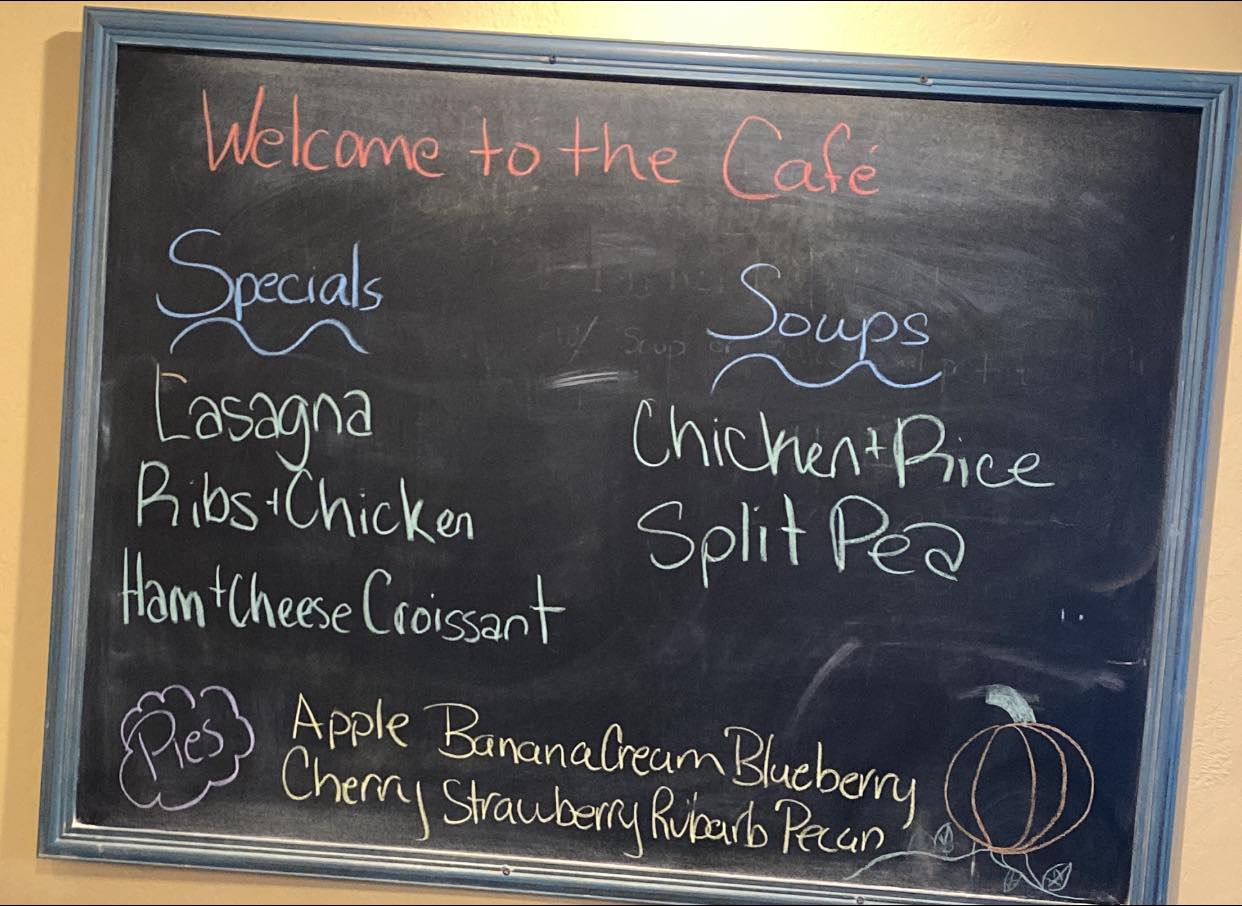 Welcome to the Café
Specials
Lasagna
Ribs + Chicken
Ham + Cheese Croissant
Soups
Chicken + Rice
Split Pea
Pies
Apple Banana Cream Blueberry
Cherry Strawberry Rubarb Pecan
w/ Soup